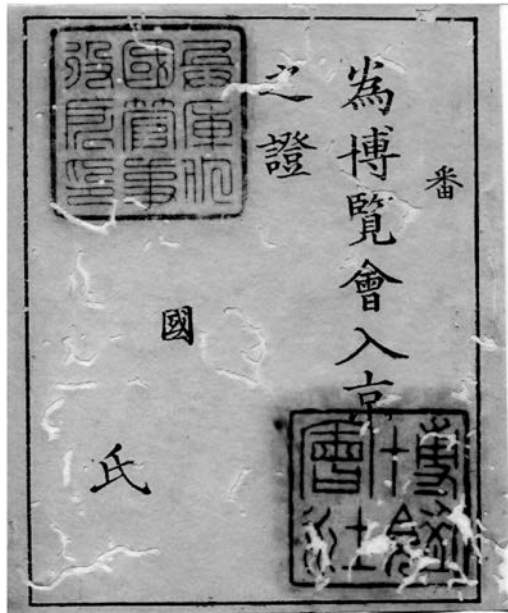 番
為博覽會入京
之證
國
氏
博覽
會社